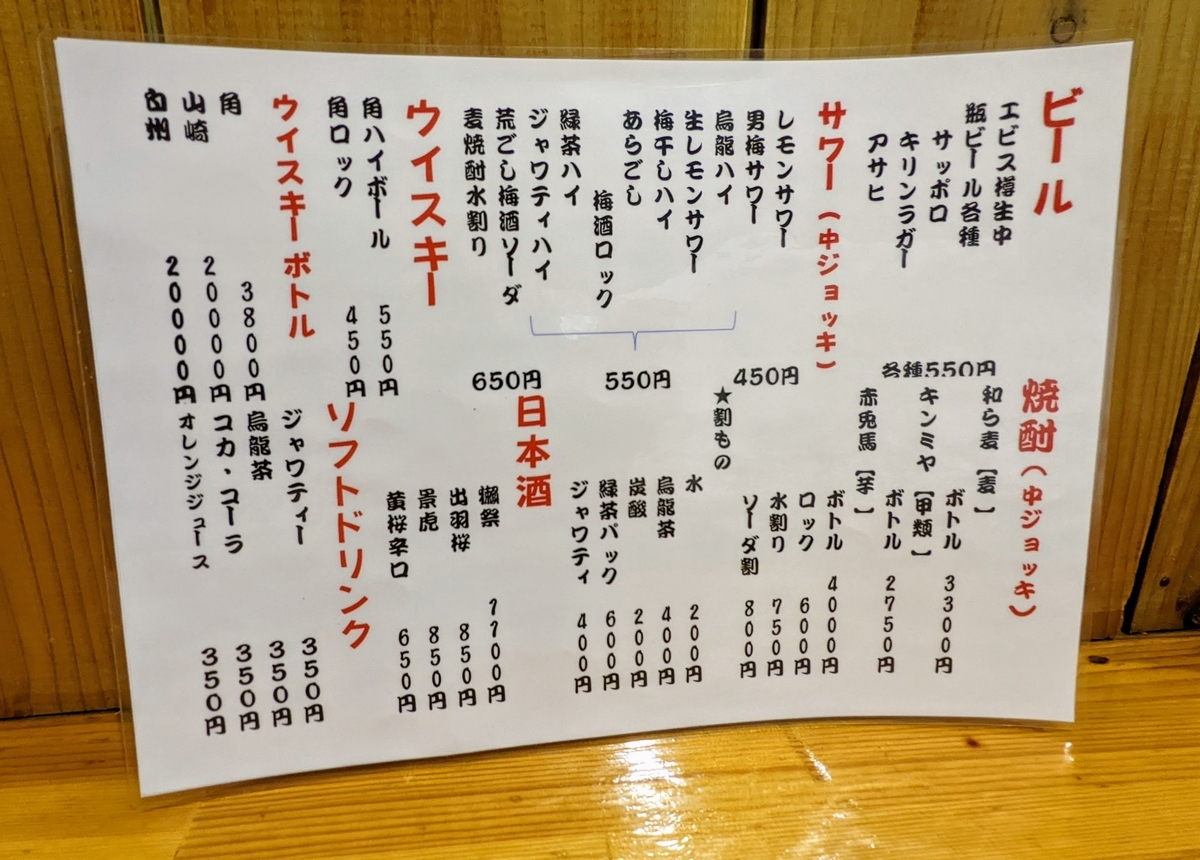 ビール
エビス樽生中
瓶ビール各種
サッポロ
キリンラガー
アサヒ
各種550円
サワー(中ジョッキ)
レモンサワー
男梅サワー
450円
烏龍ハイ
生レモンサワー
梅干しハイ
あらごし
梅酒ロック
緑茶ハイ
ジャワティハイ
550円
荒ごし梅酒ソーダ
麦焼酎水割り
650円
ウイスキー
角ハイボール 550円
角ロック 450円
ウイスキーボトル
角 3800円
山崎 20000円
白州 20000円
焼酎(中ジョッキ)
和ら麦【麦】
ボトル 3300円
キンミヤ【甲類】
ボトル 2750円
赤兎馬【芋】
ボトル 4000円
ロック 600円
水割り 750円
ソーダ割 800円
★割もの
水 200円
烏龍茶 400円
炭酸 200円
緑茶パック 600円
ジャワティ 400円
日本酒
獺祭 1100円
出羽桜 850円
景虎 850円
黄桜辛口 650円
ソフトドリンク
ジャワティー 350円
烏龍茶 350円
コカ・コーラ 350円
オレンジジュース 350円